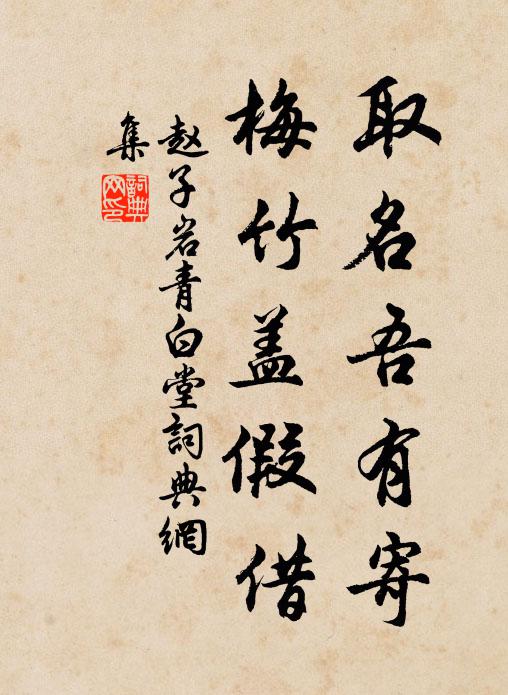 取名吾有寄
梅竹盖假借
赵子岩青白堂詞典網
集
詞典
网印